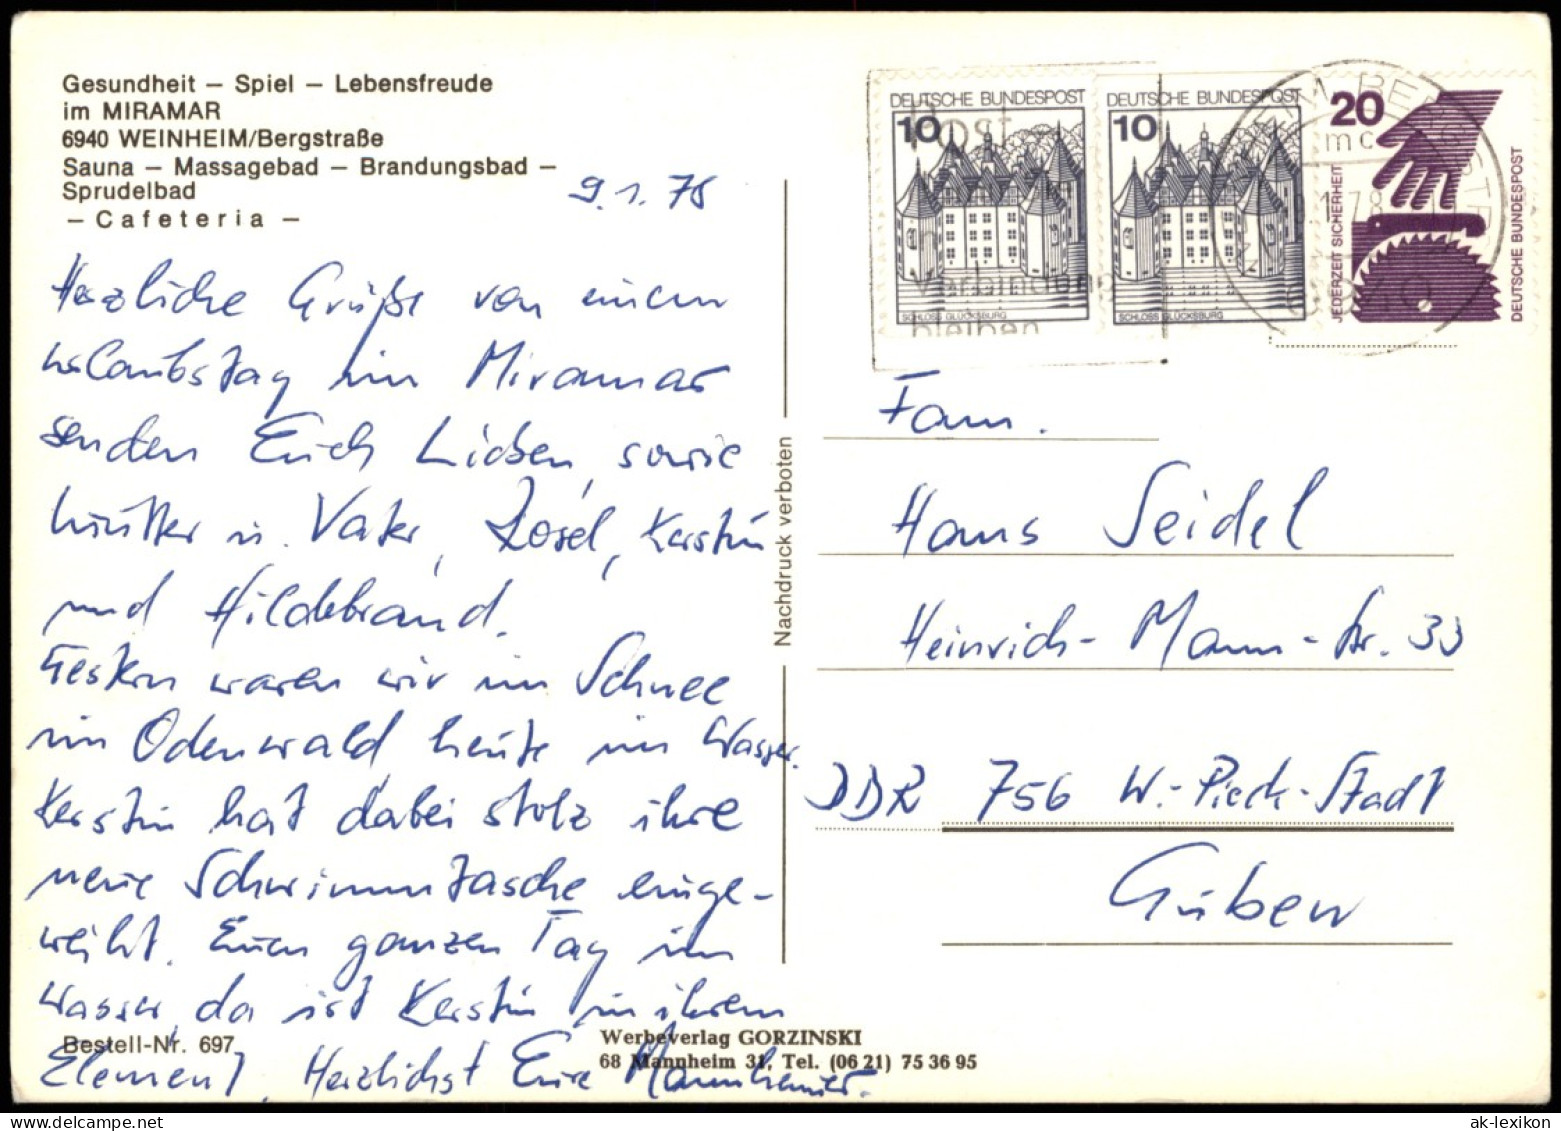 Gesundheit – Spiel – Lebensfreude
im MIRAMAR
6940 WEINHEIM/Bergstraße
Sauna – Massagebad – Brandungsbad –
Sprudelbad
– Cafeteria –
9.1.78
Herzliche Grüße von einem
Urlaubstag im Miramar
senden Euch Lieben, sowie
Mutter u. Vater, Kerstin
und Hildebrand.
Gestern waren wir im Schnee
im Odenwald, heute im Wasser.
Kerstin hat dabei stolz ihre
neue Schwimmtasche einge-
weiht. Einen ganzen Tag im
Wasser, da ist Kerstin in ihrem
Element. Herzlichst Eure Mannheimer.
Bestell-Nr. 697
Werbeverlag GORZINSKI
68 Mannheim 31, Tel. (06 21) 75 36 95
Nachdruck verboten
DEUTSCHE BUNDESPOST
10
SCHLOSS GLÜCKSBURG
DEUTSCHE BUNDESPOST
10
SCHLOSS GLÜCKSBURG
20
JEDERZEIT SICHERHEIT
DEUTSCHE BUNDESPOST
Post
in
Verbindung
bleiben
mc
6940
Fam.
Hans Seidel
Heinrich-Mann-Str. 33
DDR 756 W.-Pieck-Stadt
Guben
ak-lexikon.com